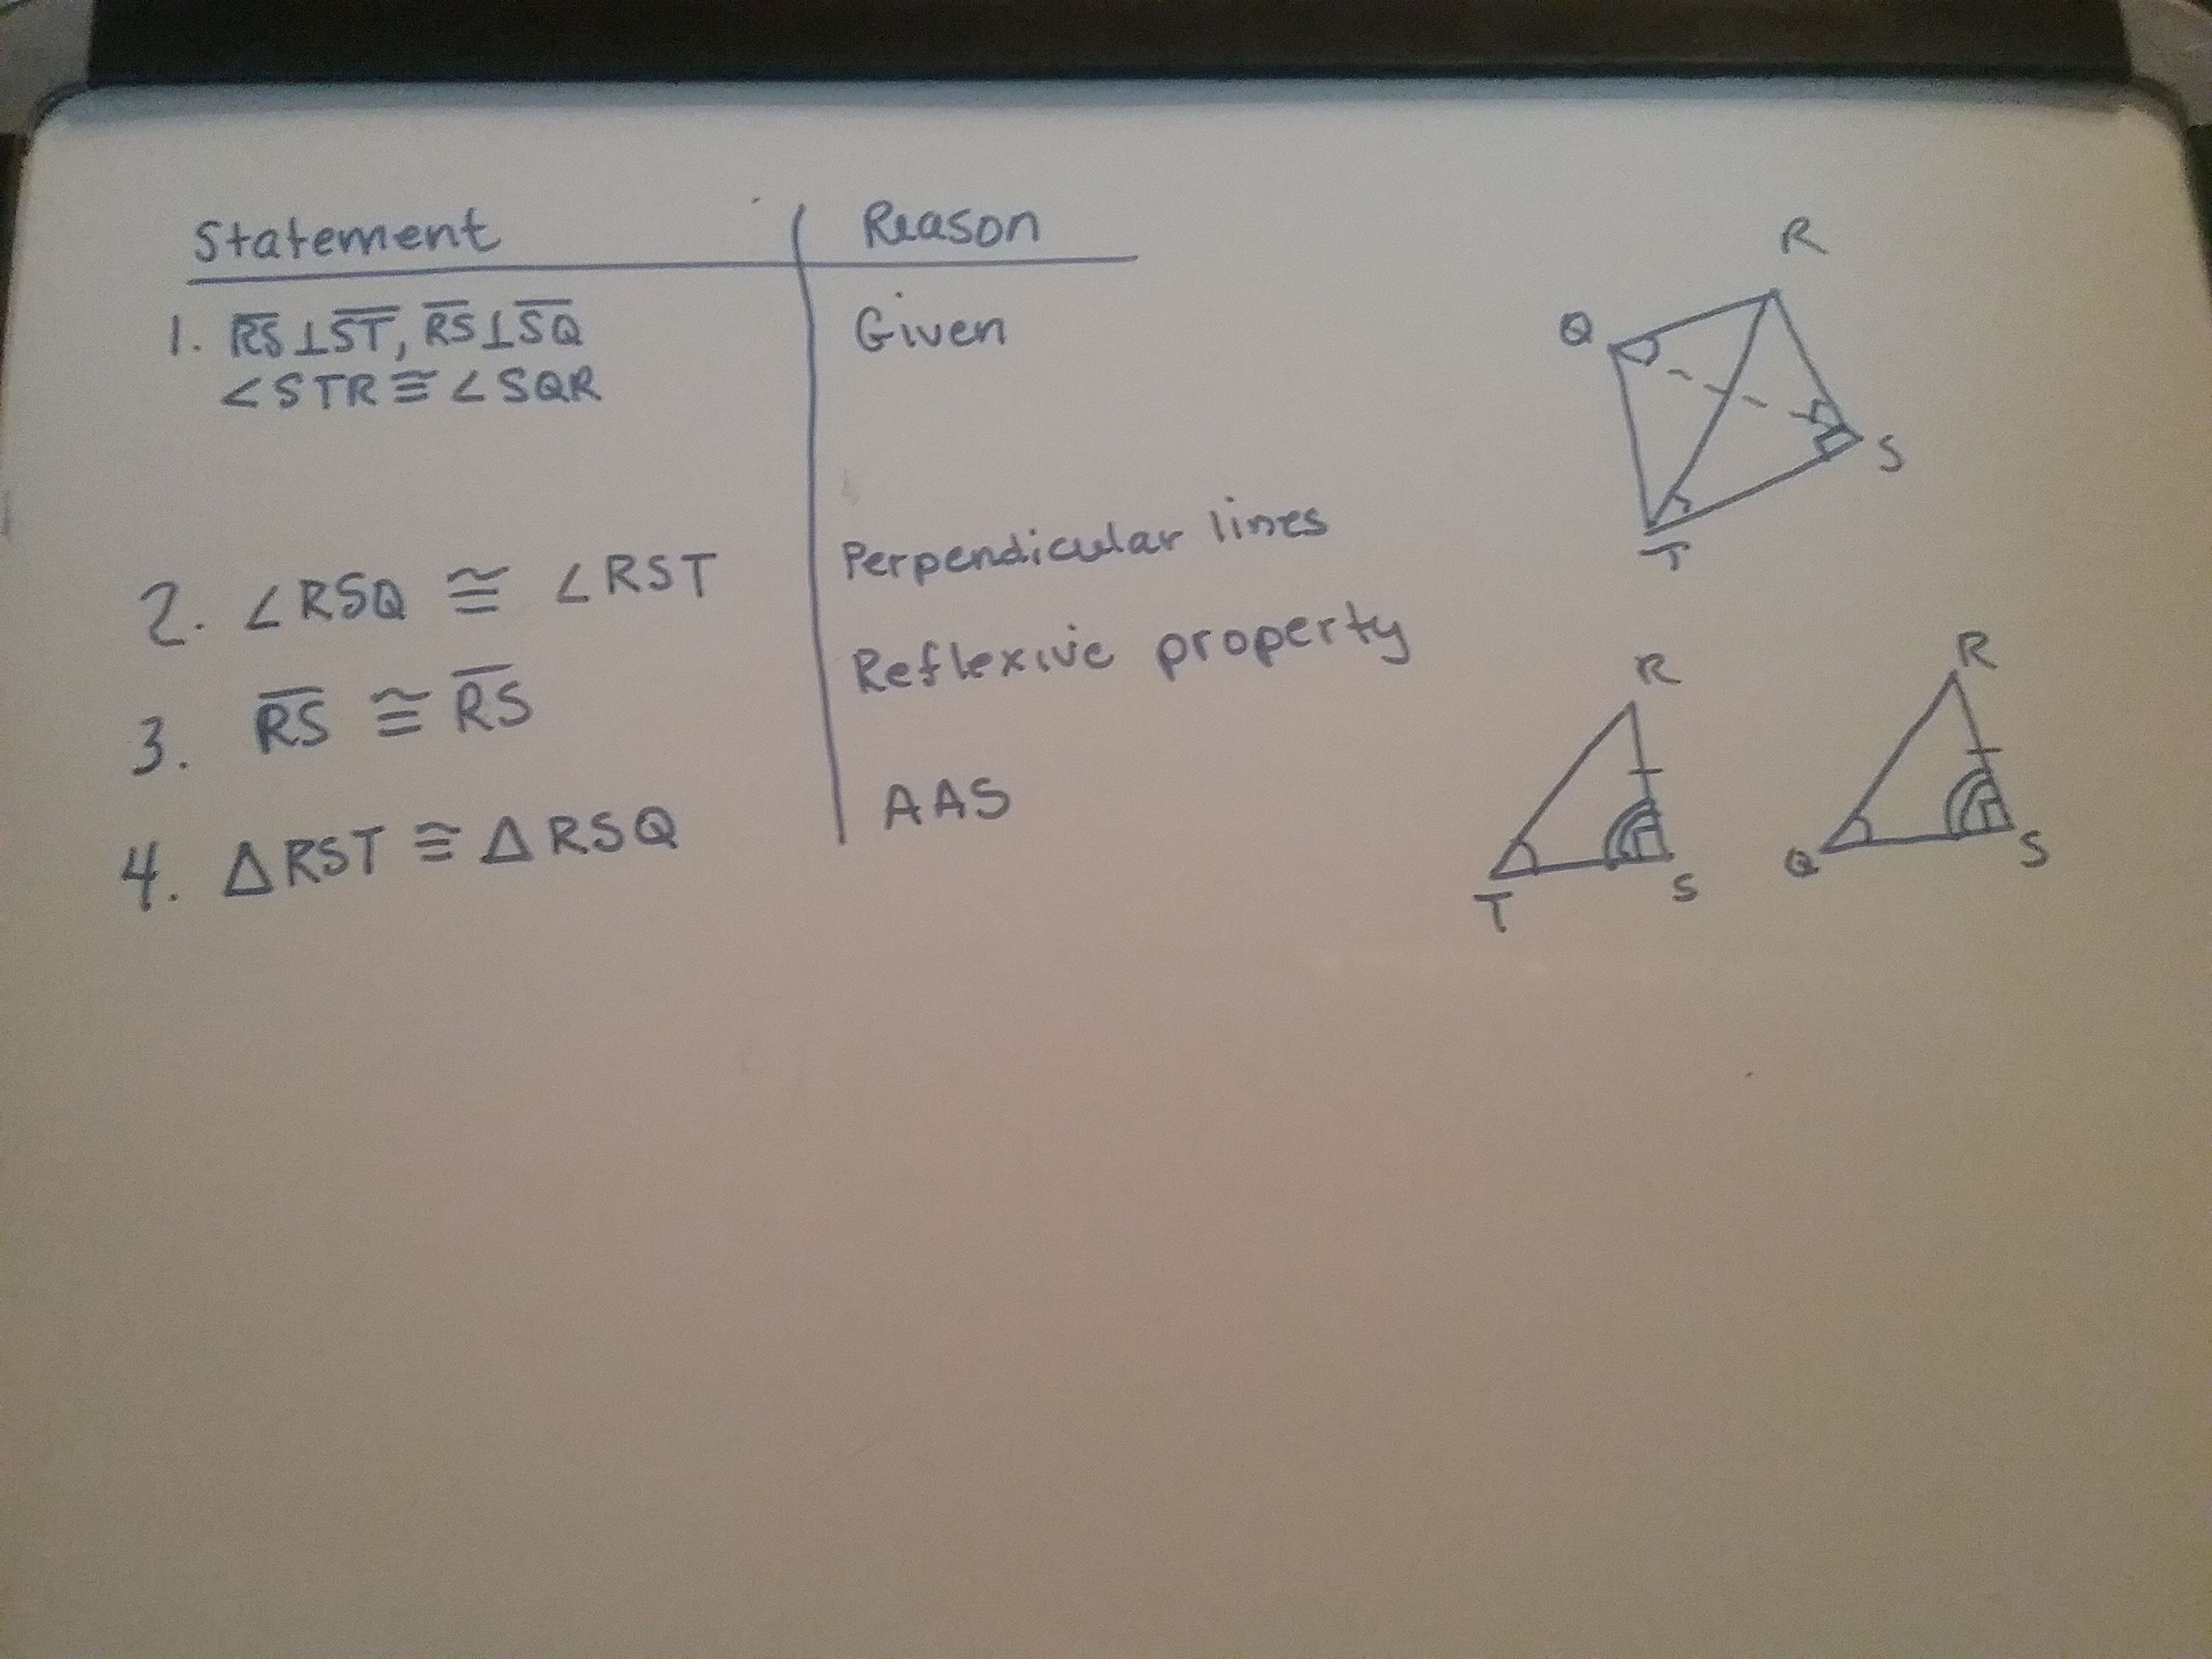 Statement Reason
1. R̅S̅ ⊥ S̅T̅, R̅S̅ ⊥ S̅Q̅ Given
∠STR ≅ ∠SQR
2. ∠RSQ ≅ ∠RST Perpendicular lines
3. R̅S̅ ≅ R̅S̅ Reflexive property
4. △RST ≅ △RSQ AAS
R
Q
S
T
R
T
S
R
Q
S